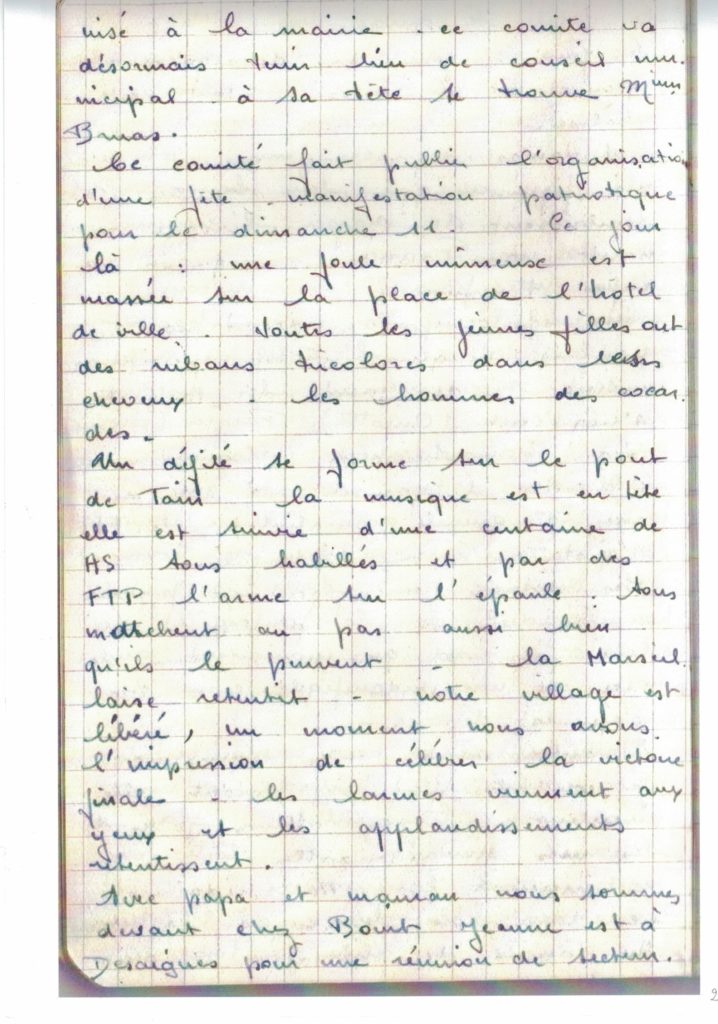 nisé à la mairie. ce comite va
désormais tenir lieu de conseil mu-
nicipal. à sa tête se trouve
Ce comité fait publier l'organisation
d'une fête. manifestation patriotique
pour le dimanche 11. Ce jour
là : une foule immense est
massée sur la place de l'hôtel
de ville. toutes les jeunes filles ont
des rubans tricolores dans leurs
cheveux - les hommes des cocar-
des.
Un défilé se forme sur le pont
de Tain la musique est en tête
elle est suivie d'une centaine de
AS tous habillés et par des
FTP l'arme sur l'épaule. tous
marchent au pas aussi bien
qu'ils le peuvent - la Marseil-
laise retentit - notre village est
libéré, un moment nous avons
l'impression de célébrer la victoire
finale - les larmes viennent aux
yeux et les applaudissements
retentissent.
Avec papa et maman nous sommes
devant chez Jeanne est à
Desaignes pour une réunion de secteur.
2